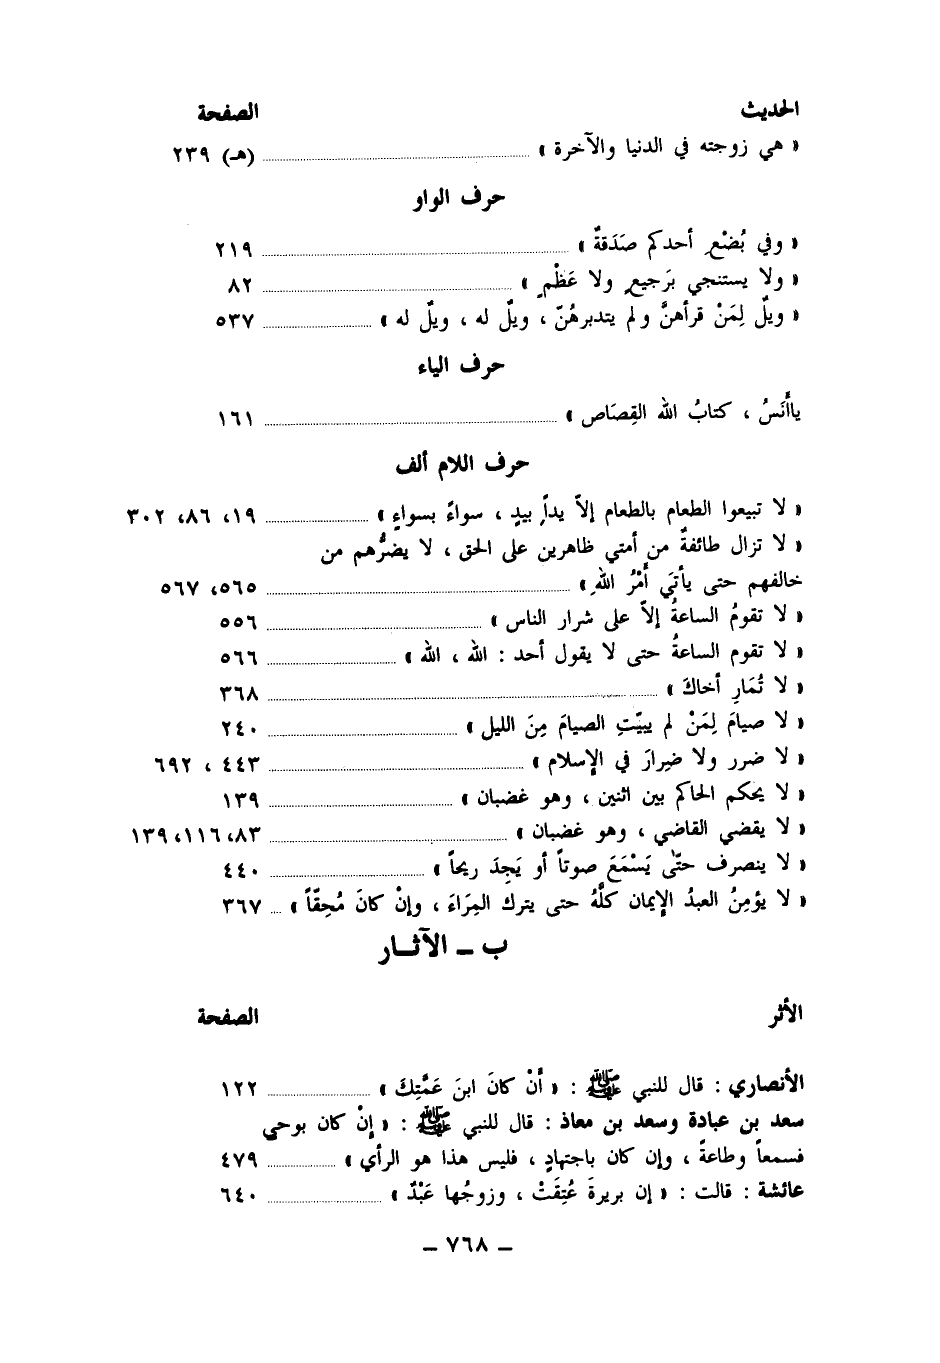 الحديث الصفحة
« هي زوجته في الدنيا والآخرة » ........ (هـ) ٢٣٩
حرف الواو
« وفي بُضْعِ أحدكم صَدَقةٌ » ........ ٢١٩
« ولا يستنجي بَرَجيعٍ ولا عَظْمٍ » ........ ٨٢
« ويلٌ لِمَنْ قرأهنَّ ولم يتدبرهُنّ ، ويلٌ له ، ويلٌ له » ........ ٥٣٧
حرف الياء
ياأَنَسُ ، كتابُ الله القِصَاص » ........ ١٦١
حرف اللام ألف
« لا تبيعوا الطعام بالطعام إلاّ يداً بيدٍ ، سواءً بسواءٍ » ........ ١٩، ٨٦، ٣٠٢
« لا تزال طائفةٌ من أمتي ظاهرين على الحق ، لا يضرُّهم من
خالفهم حتى يأتَي أَمْرُ اللهِ » ........ ٥٦٥، ٥٦٧
« لا تقومُ الساعةُ إلاّ على شرار الناس » ........ ٥٥٦
« لا تقوم الساعةُ حتى لا يقول أحد : الله ، الله » ........ ٥٦٦
« لا تُمَارِ أخاكَ » ........ ٣٦٨
« لا صيامَ لِمَنْ لم يبيّتِ الصيامَ مِنَ الليل » ........ ٢٤٠
« لا ضرر ولا ضِرارَ في الإسلام » ........ ٤٤٣ ، ٦٩٢
« لا يحكم الحاكم بين اثنين ، وهو غضبان » ........ ١٣٩
« لا يقضي القاضي ، وهو غضبان » ........ ٨٣، ١١٦، ١٣٩
« لا ينصرف حتّى يَسْمَعَ صوتاً أو يَجِدَ ريحاً » ........ ٤٤٠
« لا يؤمِنُ العبدُ الإيمان كلَّهُ حتى يترك المِرَاءَ ، وإنْ كانَ مُحِقّاً » ... ٣٦٧
ب ــ الآثــار
الأثر الصفحة
الأنصاري : قال للنبي ﷺ : « أَنْ كانَ ابنَ عَمَّتِكَ » ........ ١٢٢
سعد بن عبادة وسعد بن معاذ : قال للنبي ﷺ : « إنْ كان بوحي
فسمعاً وطاعةً ، وإن كان باجتهادٍ ، فليس هذا هو الرأي » ........ ٤٧٩
عائشة : قالت : « إن بريرةَ عُتِقَتْ ، وزوجُها عَبْدٌ » ........ ٦٤٠
ــ ٧٦٨ ــ